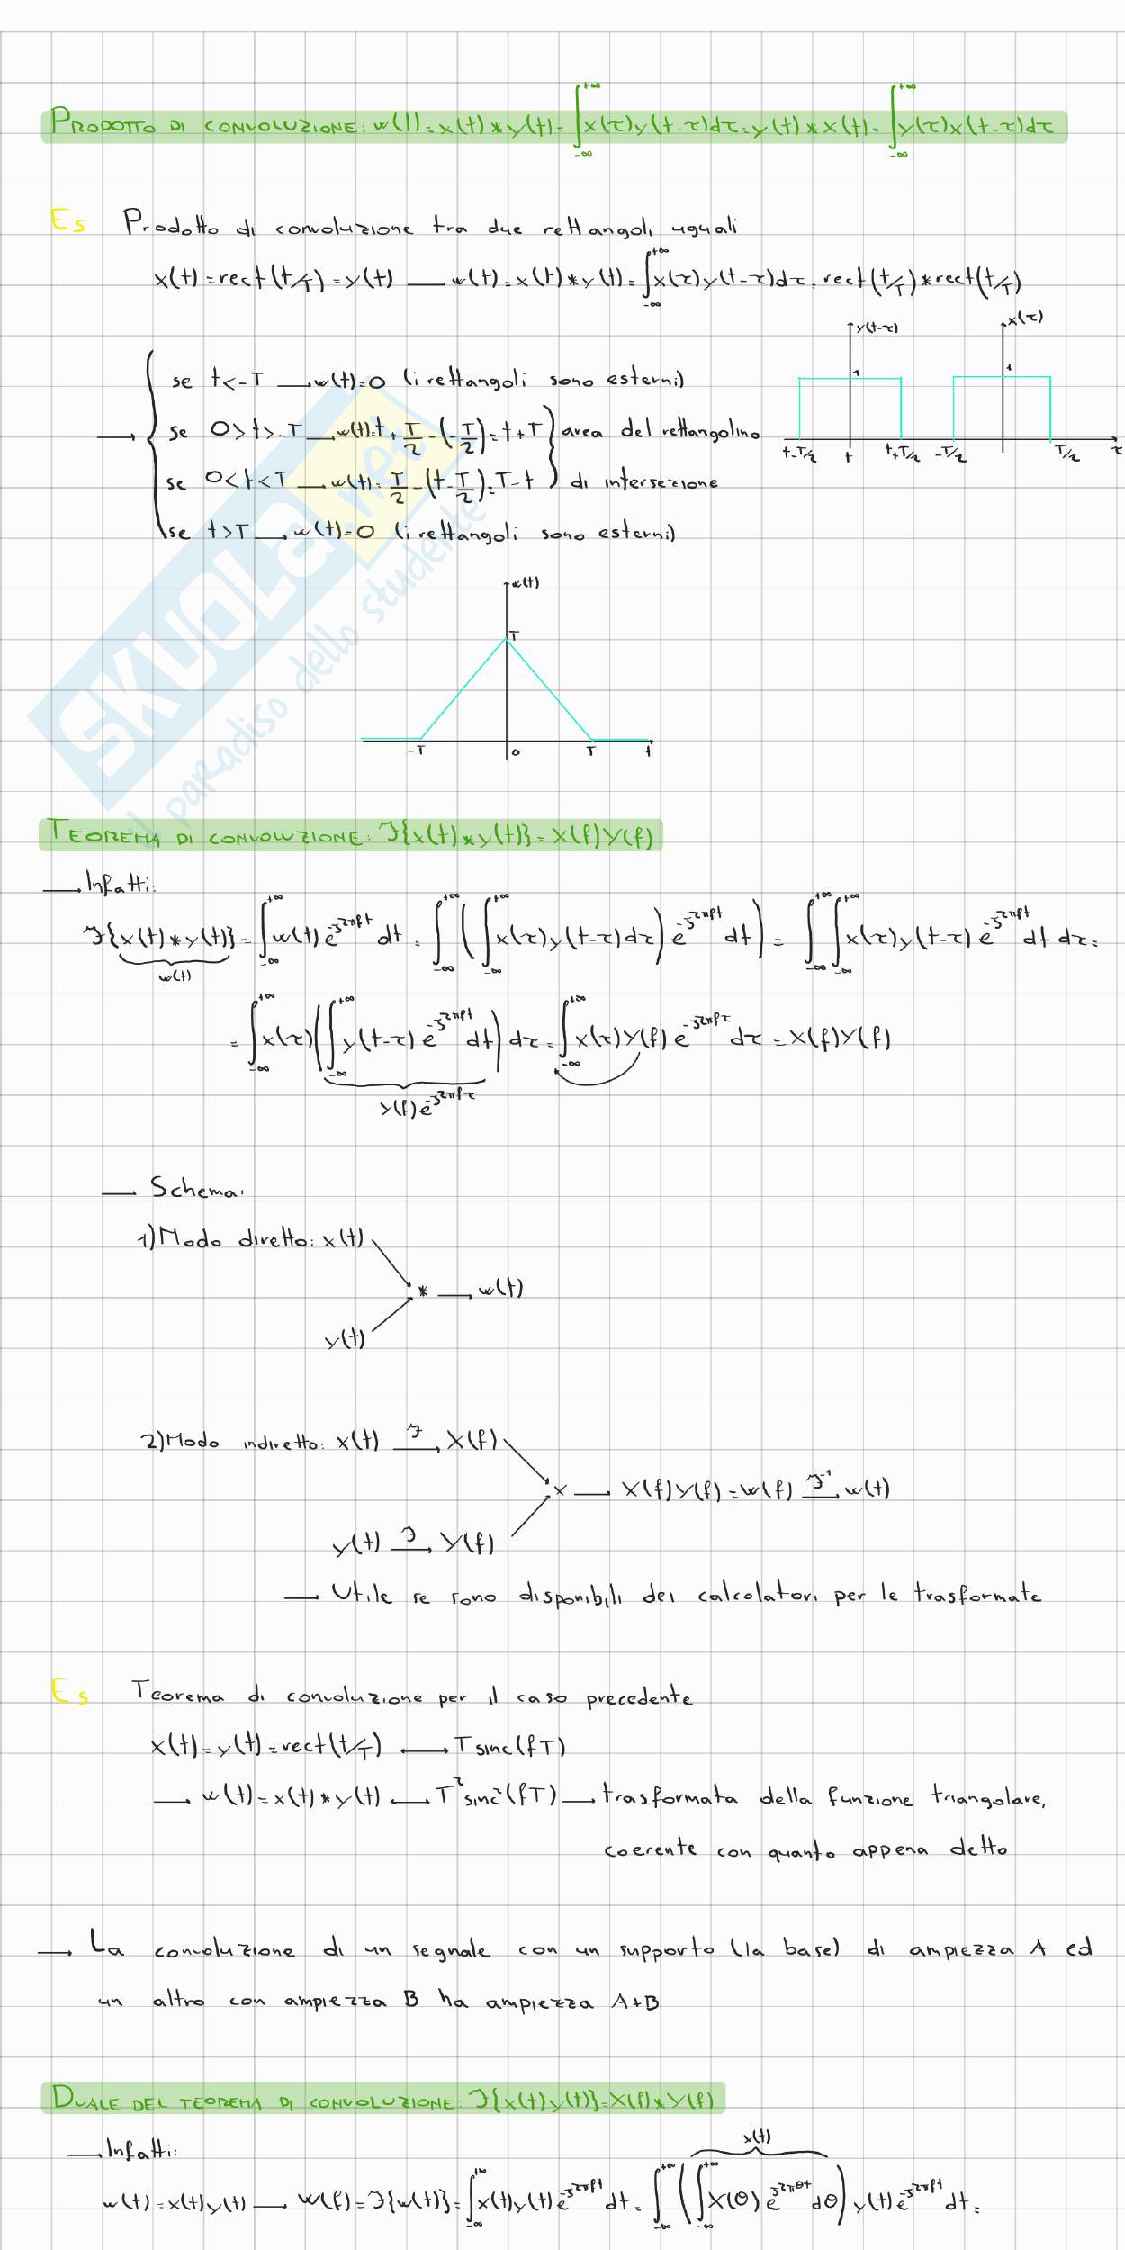 PRODOTTO DI CONVOLUZIONE: w(t)=x(t)*y(t)=∫_{-∞}^{+∞} x(τ)y(t-τ)dτ=y(t)*x(t)=∫_{-∞}^{+∞} y(τ)x(t-τ)dτ
Es Prodotto di convoluzione tra due rettangoli uguali
x(t)=rect(t/T)=y(t) → w(t)=x(t)*y(t)=∫_{-∞}^{+∞} x(τ)y(t-τ)dτ=rect(t/T)*rect(t/T)
y(t-τ) x(τ)
1 1
→ { se t<-T → w(t)=0 (i rettangoli sono esterni)
se 0>t>-T → w(t)=t+T/2-(-T/2)=t+T } area del rettangolino
se 0<t<T → w(t)=T/2-(t-T/2)=T-t } di intersezione
se t>T → w(t)=0 (i rettangoli sono esterni)
t-T/2 t t+T/2 -T/2 T/2 τ
w(t)
T
-T 0 T t
SKUOLA.net
il paradiso dello studente
TEOREMA DI CONVOLUZIONE: ℱ{x(t)*y(t)}=X(f)Y(f)
→ Infatti:
ℱ{x(t)*y(t)}=∫_{-∞}^{+∞} w(t)e^{-j2πft}dt=∫_{-∞}^{+∞}(∫_{-∞}^{+∞} x(τ)y(t-τ)dτ)e^{-j2πft}dt)=∫_{-∞}^{+∞}∫_{-∞}^{+∞} x(τ)y(t-τ)e^{-j2πft}dt dτ=
w(t)
=∫_{-∞}^{+∞} x(τ)(∫_{-∞}^{+∞} y(t-τ)e^{-j2πft}dt)dτ=∫_{-∞}^{+∞} x(τ)Y(f)e^{-j2πfτ}dτ=X(f)Y(f)
Y(f)e^{-j2πfτ}
→ Schema:
1)Modo diretto: x(t)
* → w(t)
y(t)
2)Modo indiretto: x(t) ℱ→ X(f)
x → X(f)Y(f)=W(f) ℱ⁻¹→ w(t)
y(t) ℱ→ Y(f)
→ Utile se sono disponibili dei calcolatori per le trasformate
Es Teorema di convoluzione per il caso precedente
x(t)=y(t)=rect(t/T) ↔ T sinc(fT)
→ w(t)=x(t)*y(t) ↔ T²sinc²(fT) → trasformata della funzione triangolare,
coerente con quanto appena detto
→ La convoluzione di un segnale con un supporto (la base) di ampiezza A ed
un altro con ampiezza B ha ampiezza A+B
DUALE DEL TEOREMA DI CONVOLUZIONE: ℱ{x(t)y(t)}=X(f)*Y(f)
→ Infatti:
x(t)
w(t)=x(t)y(t) → W(f)=ℱ{w(t)}=∫_{-∞}^{+∞} x(t)y(t)e^{-j2πft}dt=∫_{-∞}^{+∞}(∫_{-∞}^{+∞} X(θ)e^{j2πθt}dθ)y(t)e^{-j2πft}dt=